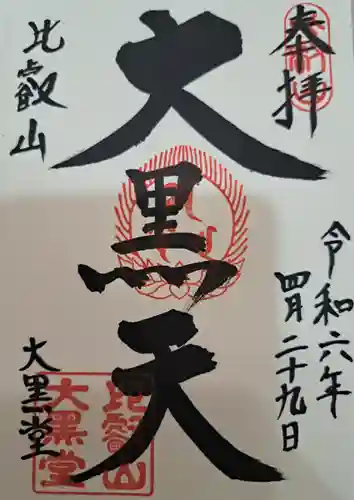 奉拝
令和六年
四月二十九日
大黒天
比叡山
大黒堂
比叡山
大黒堂